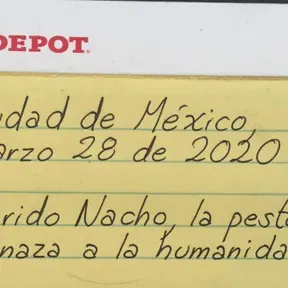 DEPOT
udad de México,
arzo 28 de 2020
rido Nacho, la pest
naza a la humanida